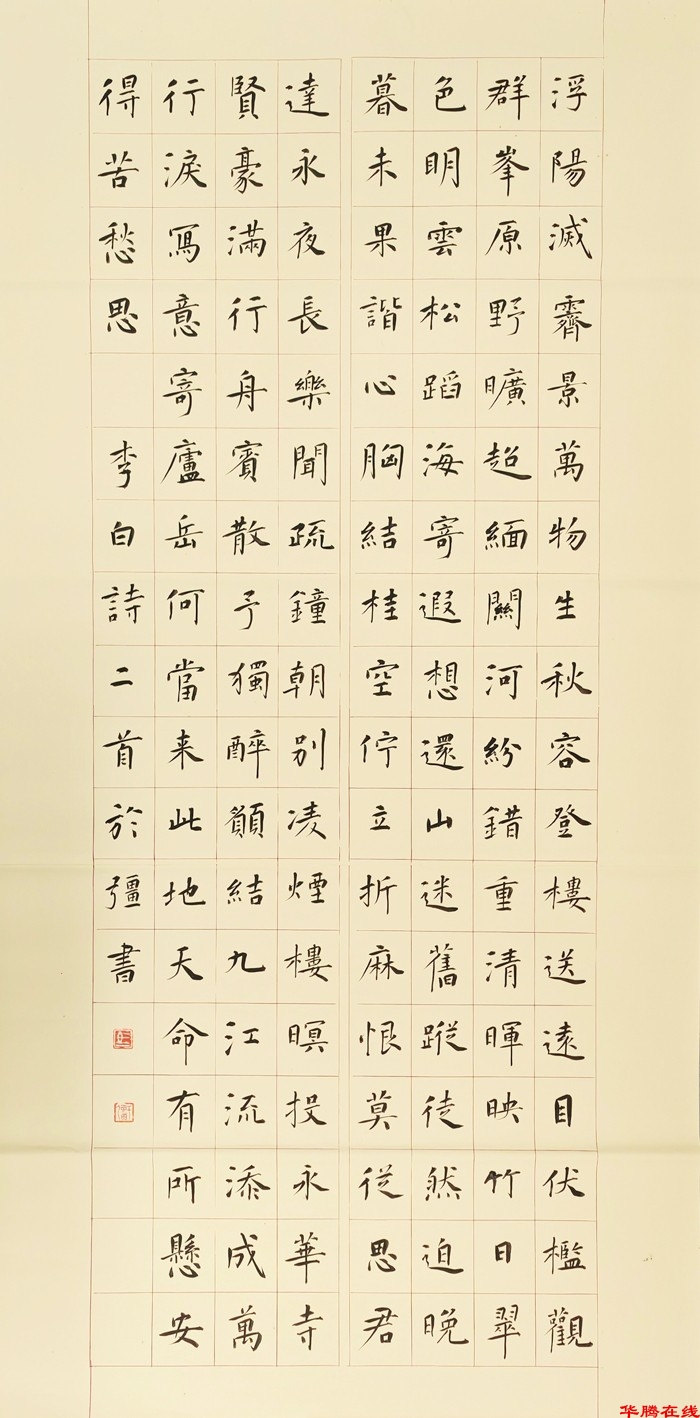 浮陽滅霽景萬物生秋容登樓送遠目伏檻觀
群峯原野曠超緬關河紛錯重清暉映竹日翠
色明雲松蹈海寄遐想還山迷舊蹤徒然迫晚
暮未果諧心胸結桂空佇立折麻恨莫從思君
達永夜長樂聞疏鐘朝別凌煙樓暝投永華寺
賢豪滿行舟賓散予獨醉願結九江流添成萬
行淚寫意寄廬岳何當来此地天命有所懸安
得苦愁思 李白詩二首於彊書
华腾在线